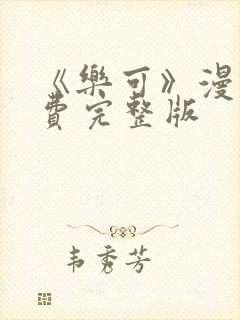 《樂可》漫
費完整版
韦秀芳